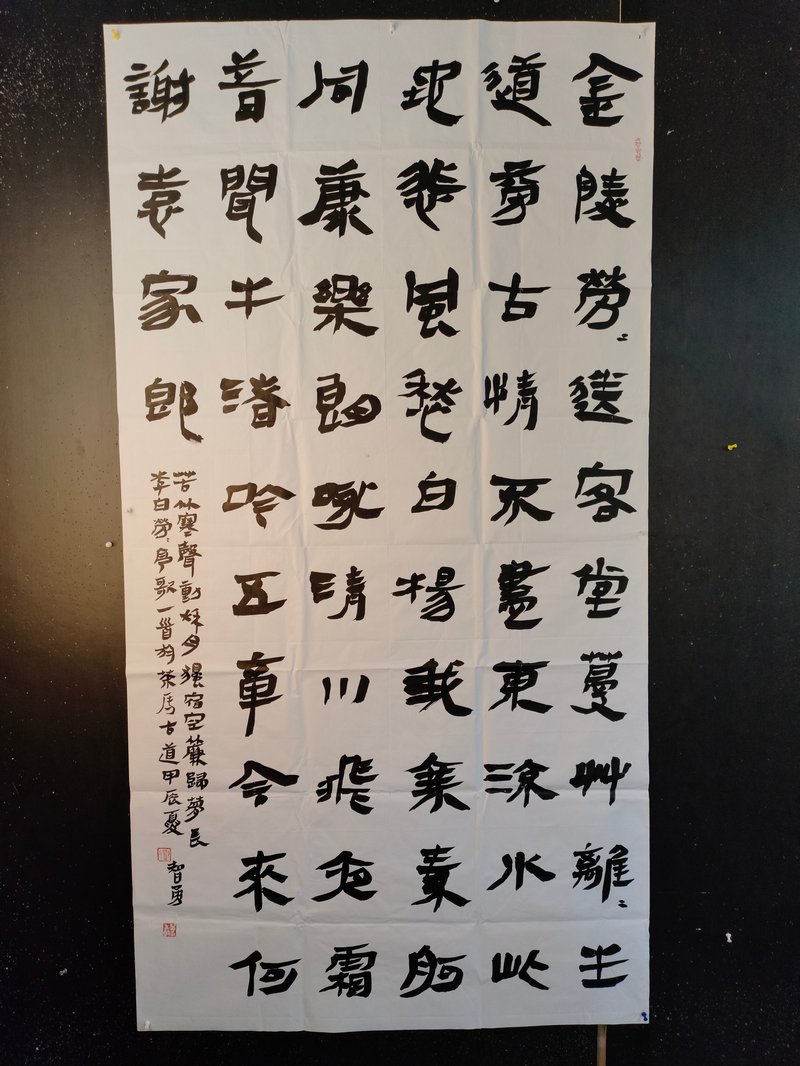 金陵勞〻送客堂蔓艸離〻生
道旁古情不盡東流水此
地悲風愁白楊我乘素舸
同康樂朗詠清川飛夜霜
昔聞牛渚吟五章今來何
謝袁家郎
苦竹寒聲動秋月獨宿空簾歸夢長
李白勞〻亭歌一首於茶馬古道甲辰夏
智勇